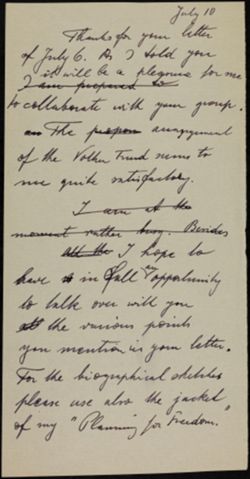 July 10
Thanks for your letter
of July 6. As I told you
I am prepared to it will be a pleasure for me
to collaborate with your group.
The arrangement
of the Volker Fund seems to
me quite satisfactory.
I am at the
moment rather busy. Besides
I hope to
have in Fall an opportunity
to talk over with you
all the various points
you mention in your letter.
For the biographical sketches
please use also the jacket
of my "Planning for Freedom."